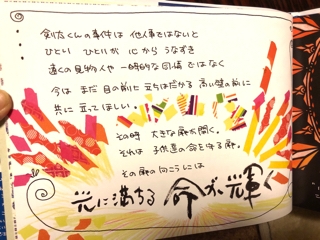 創太くんの事件は 他人事ではないと
ひとり ひとりが 心から うなずき
遠くの見物人や 一時的な団結ではなく
今は まだ 目の前に 立ちはだかる 高い壁の前に
共に 立ってほしい。
その時 大きな扉が開く。
それは 子供達の命を守る扉。
その扉の向こうには
光に満ちる 命が、輝く